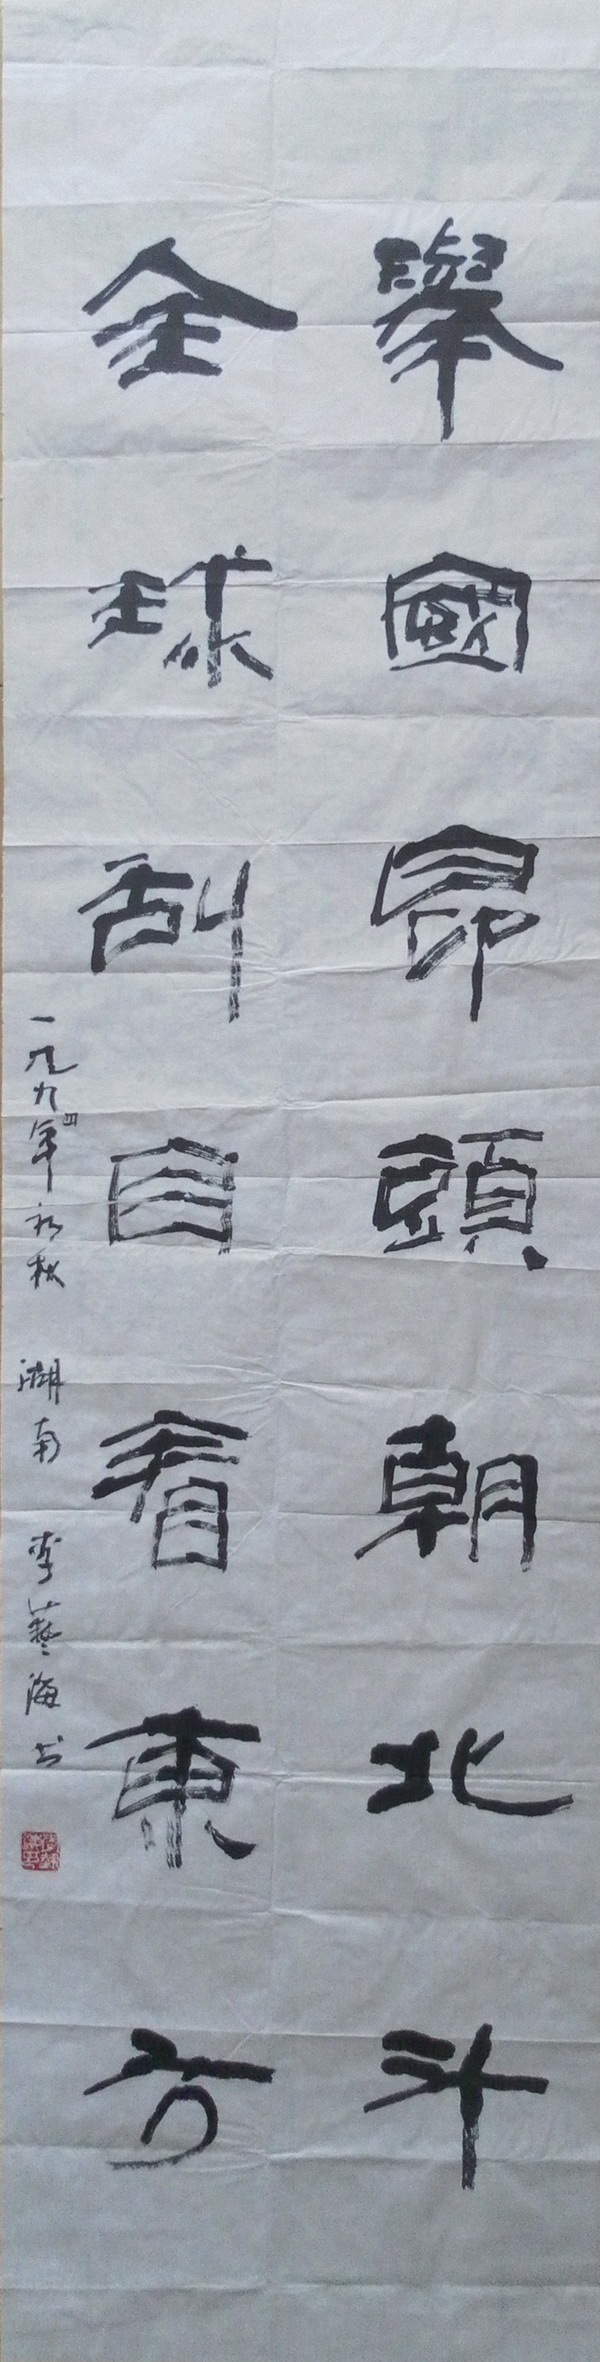 舉國昂頭朝北斗
全球刮目看東方
一九九四年初秋 湖南 李藝海书